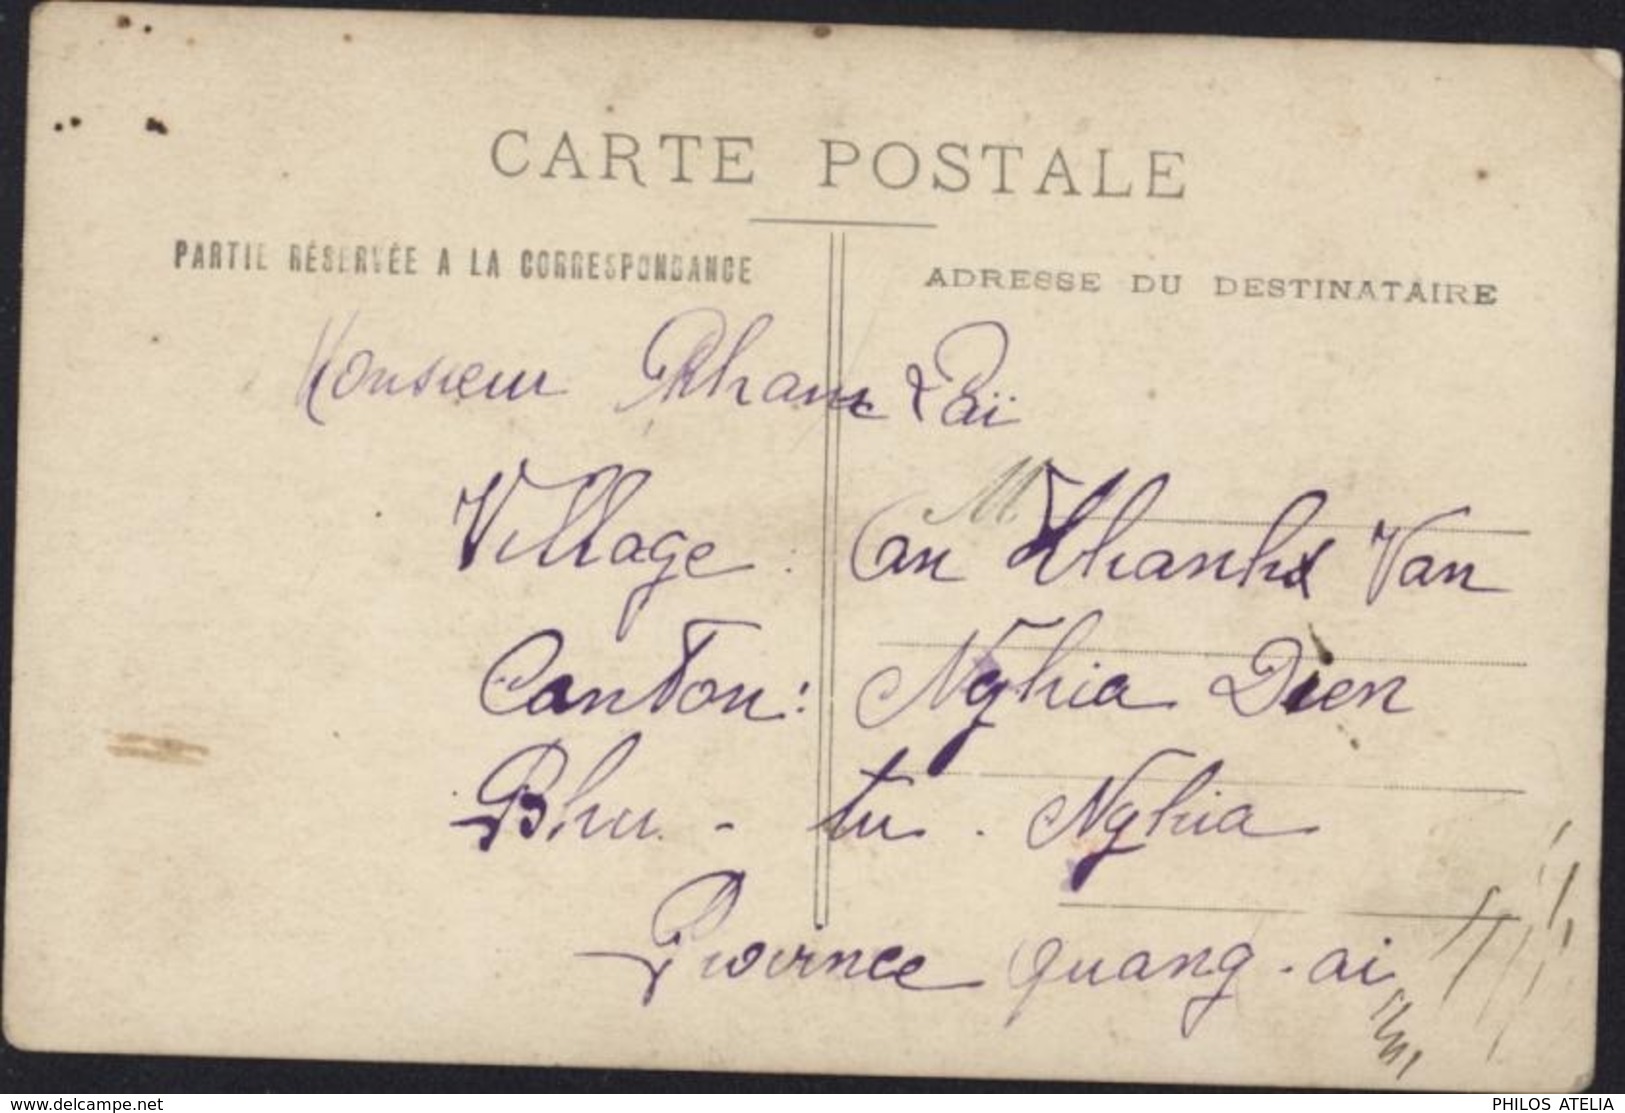 CARTE POSTALE
PARTIE RÉSERVÉE A LA CORRESPONDANCE
ADRESSE DU DESTINATAIRE
Monsieur Pham Daï
M.
Village : An Khanh Van
Canton : Nghia Dien
Phu - tu - Nghia
Province quang - ai
www.delcampe.net
PHILOS ATELIA